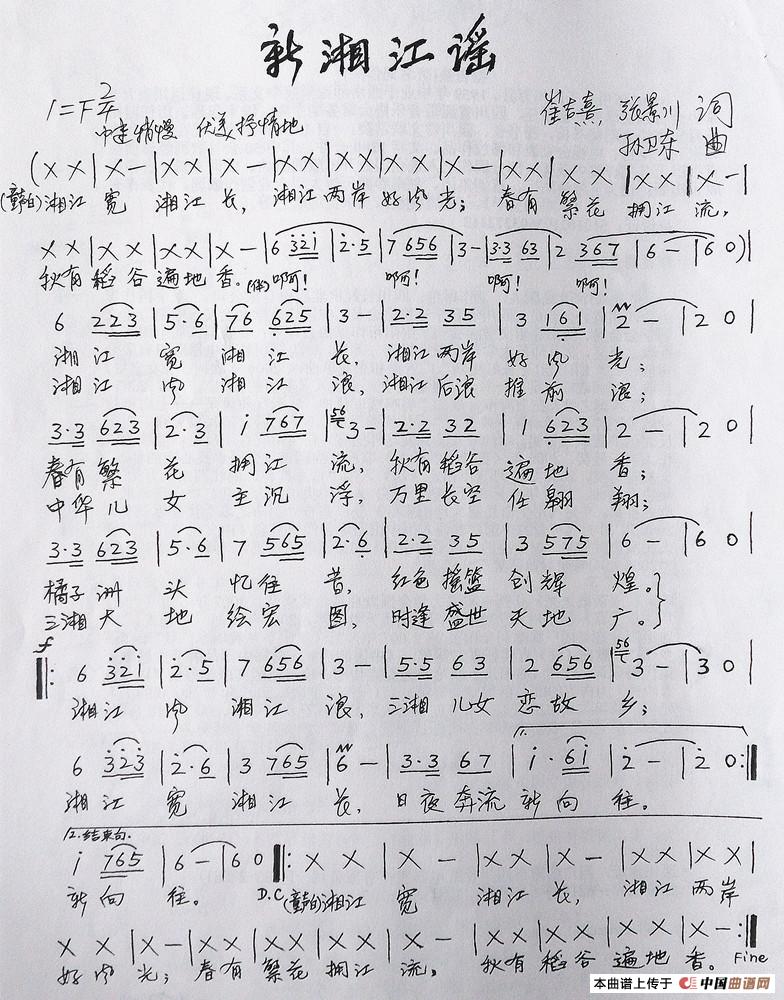 新湘江谣
1=F 2/4
中速稍慢 优美抒情地
崔吉熹、张景川 词
孙卫东 曲
(X X|X —|X X|X —|X X|X X|X X|X —|X X|X X|X X|X —|
(童白)湘江 宽 湘江 长, 湘江 两岸 好风 光; 春有 繁花 拥江 流,
X X|X X|X X|X —|6 321|2·5|7 656|3 —|3·3 63|2 367|6 —|6 0)|
秋有 稻谷 遍地 香。(伴)啊! 啊! 啊! 啊!
6 223|5·6|76 625|3 —|2·2 35|3 161|2 —|2 0|
湘 江 宽 湘 江 长, 湘江 两岸 好 风 光;
湘 江 风 湘 江 浪, 湘江 后浪 推 前 浪;
3·3 623|2·3|i 767|56 3 —|2·2 32|1 623|2 —|2 0|
春有 繁 花 拥 江 流, 秋有 稻谷 遍 地 香;
中华 儿 女 主 沉 浮, 万里 长空 任 翱 翔;
3·3 623|5·6|7 565|2·6|2·2 35|3 575|6 —|6 0|
橘子 洲 头 忆 往 昔, 红色 摇篮 创 辉 煌。}
三湘 大 地 绘 宏 图, 时逢 盛世 天 地 广。}
f
‖: 6 321|2·5|7 656|3 —|5·5 63|2 656|56 3 —|3 0|
湘 江 风 湘 江 浪, 三湘 儿女 恋 故 乡;
6 323|2·6|3 765|6 —|3·3 67|i·6i|2 —|2 0:‖
湘 江 宽 湘 江 长, 日夜 奔流 新 向 往。
12.结束句.
i 765|6 —|6 0‖: X X|X —|X X|X —|X X|X X|
新 向 往。 D.C (童白)湘江 宽 湘江 长, 湘江 两岸
X X|X —|X X|X X|X X|X —|X X|X X|X X|X —:‖
好风 光; 春有 繁花 拥江 流, 秋有 稻谷 遍地 香。 Fine
本曲谱上传于 中国曲谱网